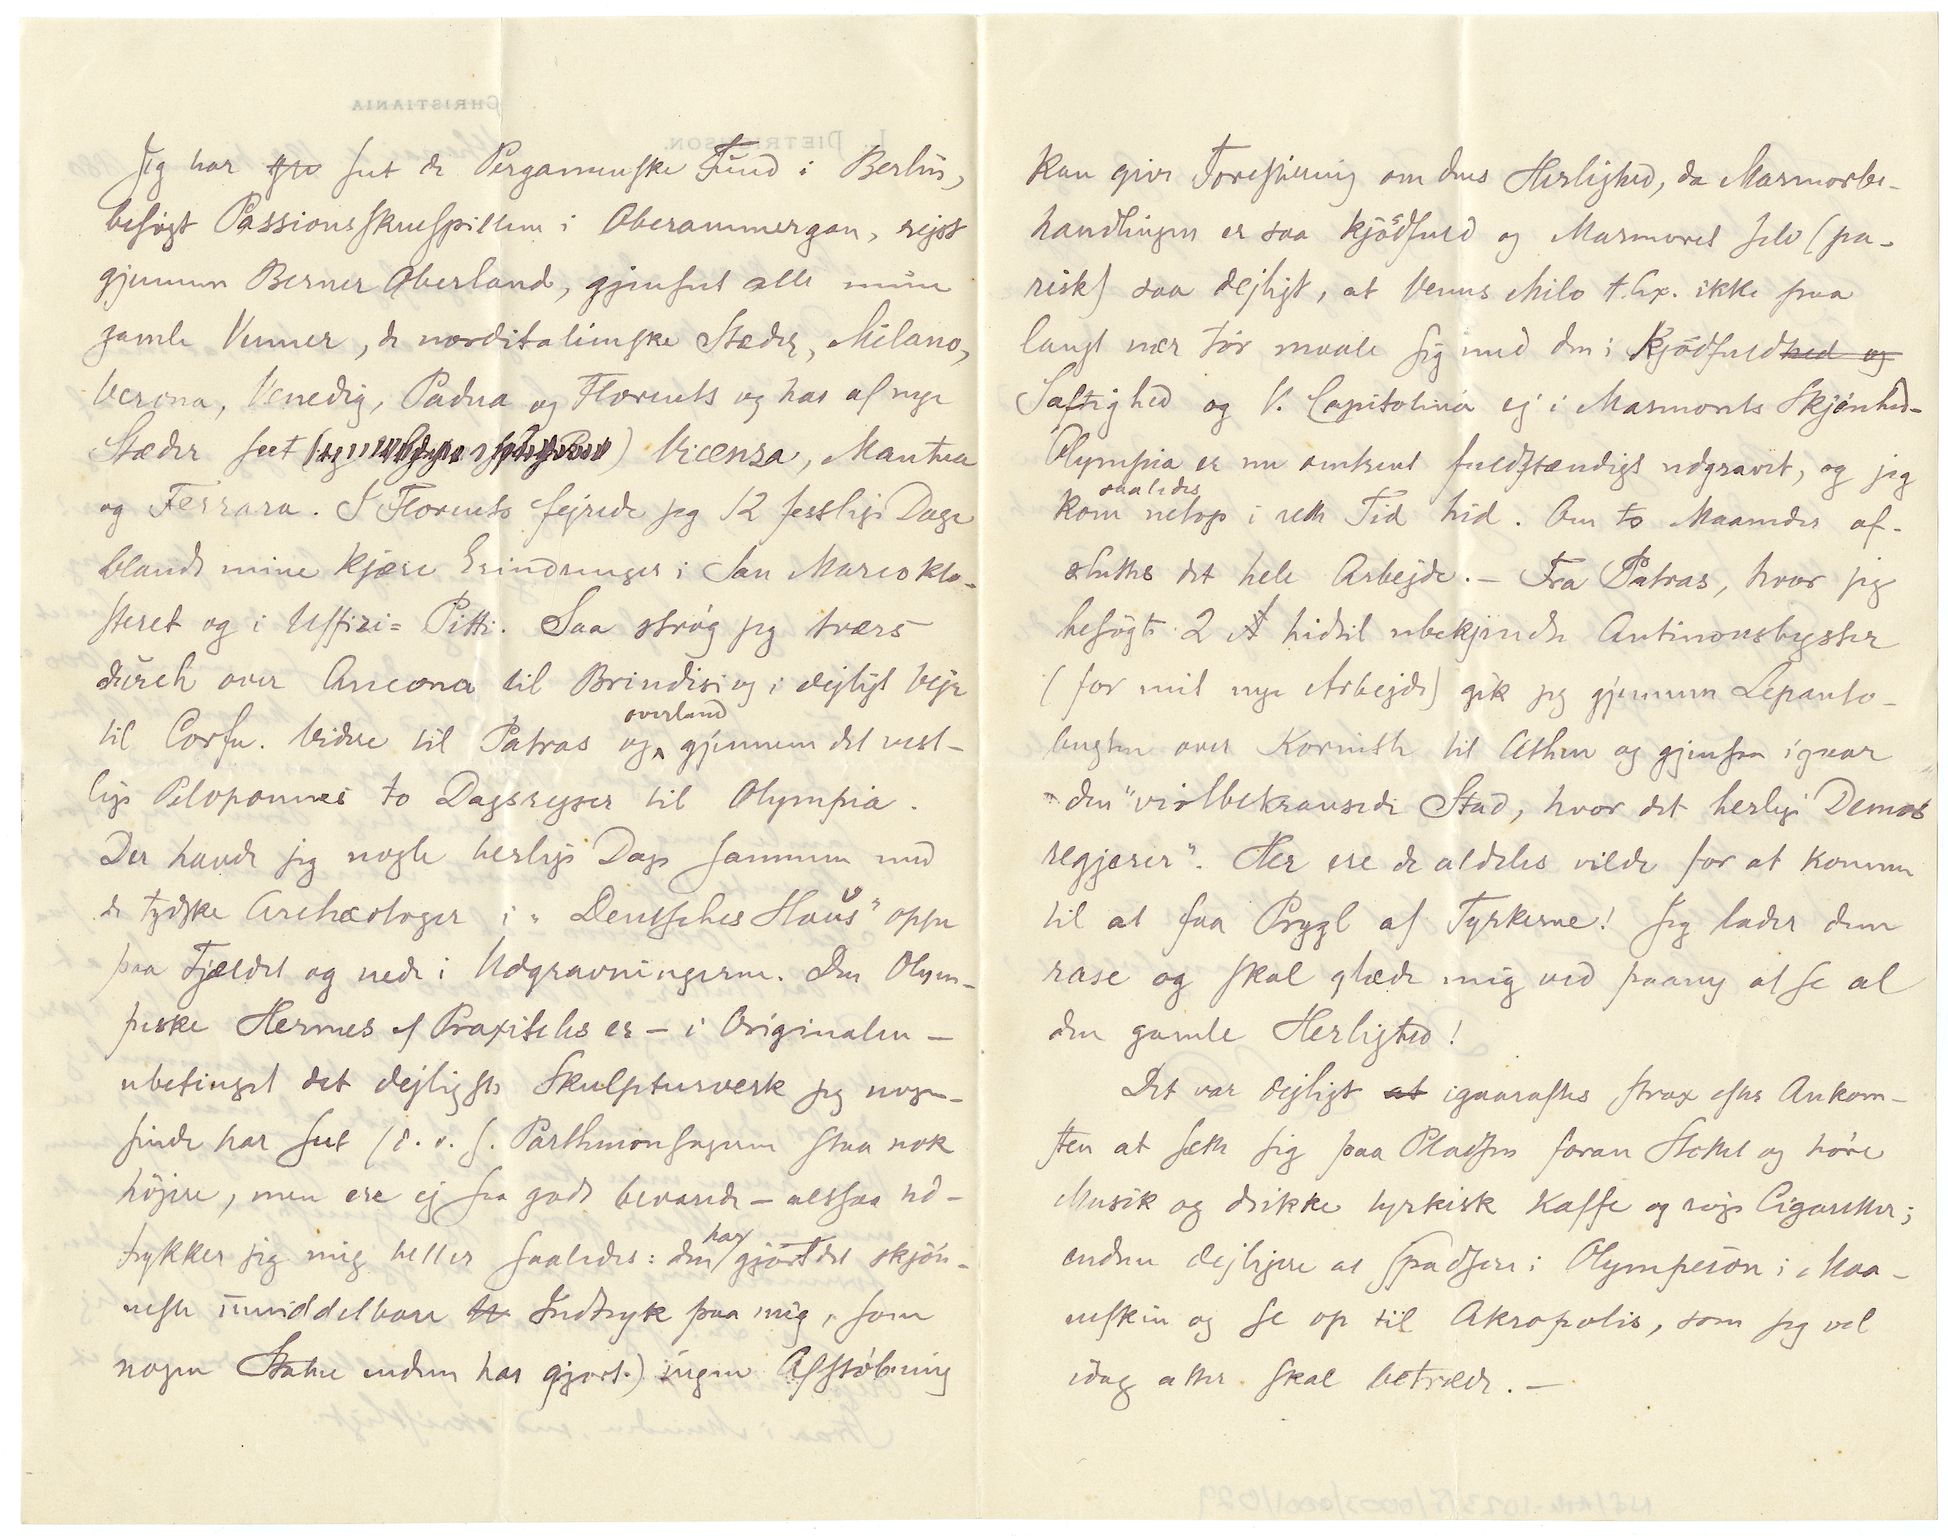 Jeg har seet de Pergamenske Fund i Berlin,
besögt Passionsskuespillene i Oberammergau, rejst
gjennem Berner Oberland, gjenseet alle mine
gamle Venner, de norditalienske Stæder, Milano,
Verona, Venedig, Padua og Florents og har af nye
Stæder seet Vicenza, Mantua
og Ferrara. I Florents fejrede jeg 12 festlige Dage
blandt mine kjære Erindringer i San Marcoklo-
steret og i Uffizi=Pitti. Saa strög jeg tværs
durch over Ancona til Brindisi og i dejligt Vejr
til Corfu. Videre til Patras og overland gjennem det vest-
lige Peloponnes to Dagsrejser til Olympia.
Der havde jeg nogle herlige Dage sammen med
de tydske Archæologer i "Deutsches Haus" oppe
paa Fjeldet og nede i Udgravningerne. Den Olym-
piske Hermes af Praxiteles er – i Originalen –
ubetinget det dejligste Skulpturverk jeg nogen-
sinde har seet (d. v. s. Parthenonsagerne staa nok
höjere, men ere ej saa godt bevarede – altsaa ud-
trykker jeg mig heller saaledes: den har gjort det skjön-
neste umiddelbare Indtryk paa mig, som
nogen Statue endnu har gjort.) ingen Afstöbning
kan give Forestilling om dens Herlighed, da Marmorbe-
handlingen er saa kjödfuld og Marmoret selv (pa-
risk) saa dejligt, at Venus Milo t. Ex. ikke paa
langt nær tör maale sig med den i Kjödfuldhed og
Saftighed og V. Capitolina ej i Marmorets Skjönhed –
Olympia er nu omtrent fuldstændigt udgravet, og jeg
kom saaledes netop i rette Tid hid. Om to Maaneder af-
sluttes det hele Arbejde. – Fra Patras, hvor jeg
besögte 2 hidtil ubekjendte Antinousbyster
(for mit nye Arbejde) gik jeg gjennem Lepanto-
bugten over Korinth til Athen og gjensaa igaar
den "violbekransede Stad, hvor det herlige Demos
regjerer". Her ere de aldeles vilde for at komme
til at faa Prygl af Tyrkerne! Jeg lader dem
rase og skal glæde mig ved paany at se al
den gamle Herlighed!
Det var dejligt at igaaraftes strax efter Ankom-
sten at sætte sig paa Pladsen foran Slottet og höre
Musik og drikke tyrkisk Kaffe og röge Cigaretter;
endnu dejligere at spadsere i Olympeion i Maa-
neskin og se op til Akropolis, som jeg vel
idag atter skal betræde. –